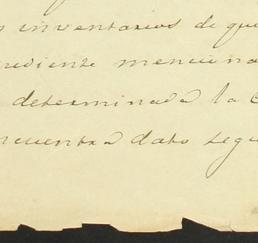 inventarios de que
ediente mencina
determinada la C
cuentra dato segu